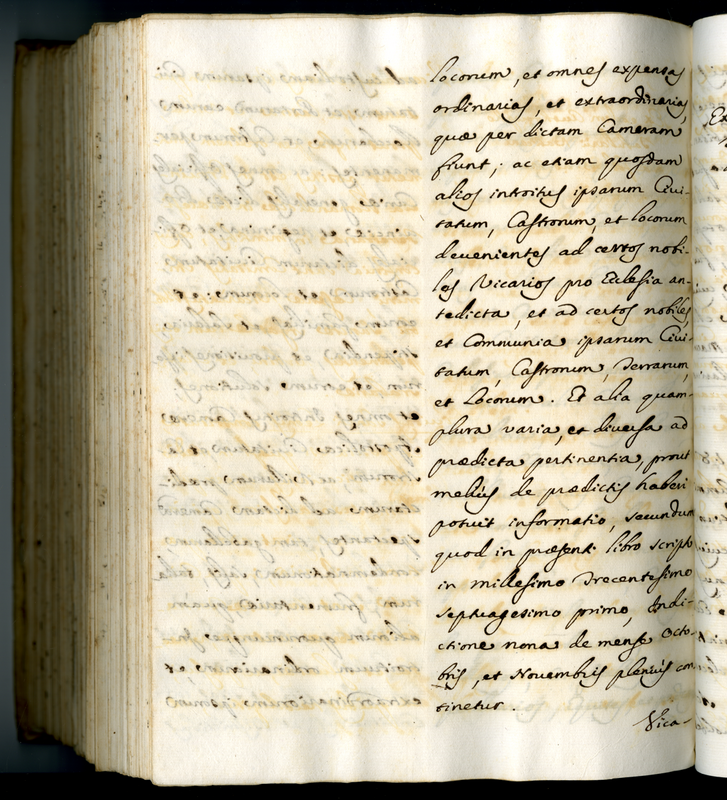 locorum, et omnes expensas
ordinarias, et extraordinarias,
quæ per dictam Cameram
fiunt; ac etiam quosdam
alios introitus ipsarum Civi-
tatum, Castrorum, et locorum
devenientes ad certos nobi-
les Vicarios pro Ecclesia an-
tedicta, et ad certos nobiles,
et Communia ipsarum Civi-
tatum, Castrorum, Terrarum,
et Locorum. Et alia quam-
plura varia, et diversa ad
prædicta pertinentia, prout
melius de prædictis haberi
potuit informatio, secundum
quod in præsenti libro scripto
in millesimo Trecentesimo
septuagesimo primo, Indi-
ctione nona de mense Octo-
bris, et Novembris plenius con
tinetur.
Vica-